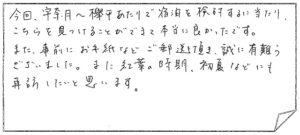 今回、宇奈月〜欅平あたりで宿泊を検討するに当たり、
こちらを見つけることができて本当に良かったです。
また、事前にお手紙などご郵送頂き、誠に有難う
ございました。また紅葉の時期、初夏などにも
再訪したいと思います。